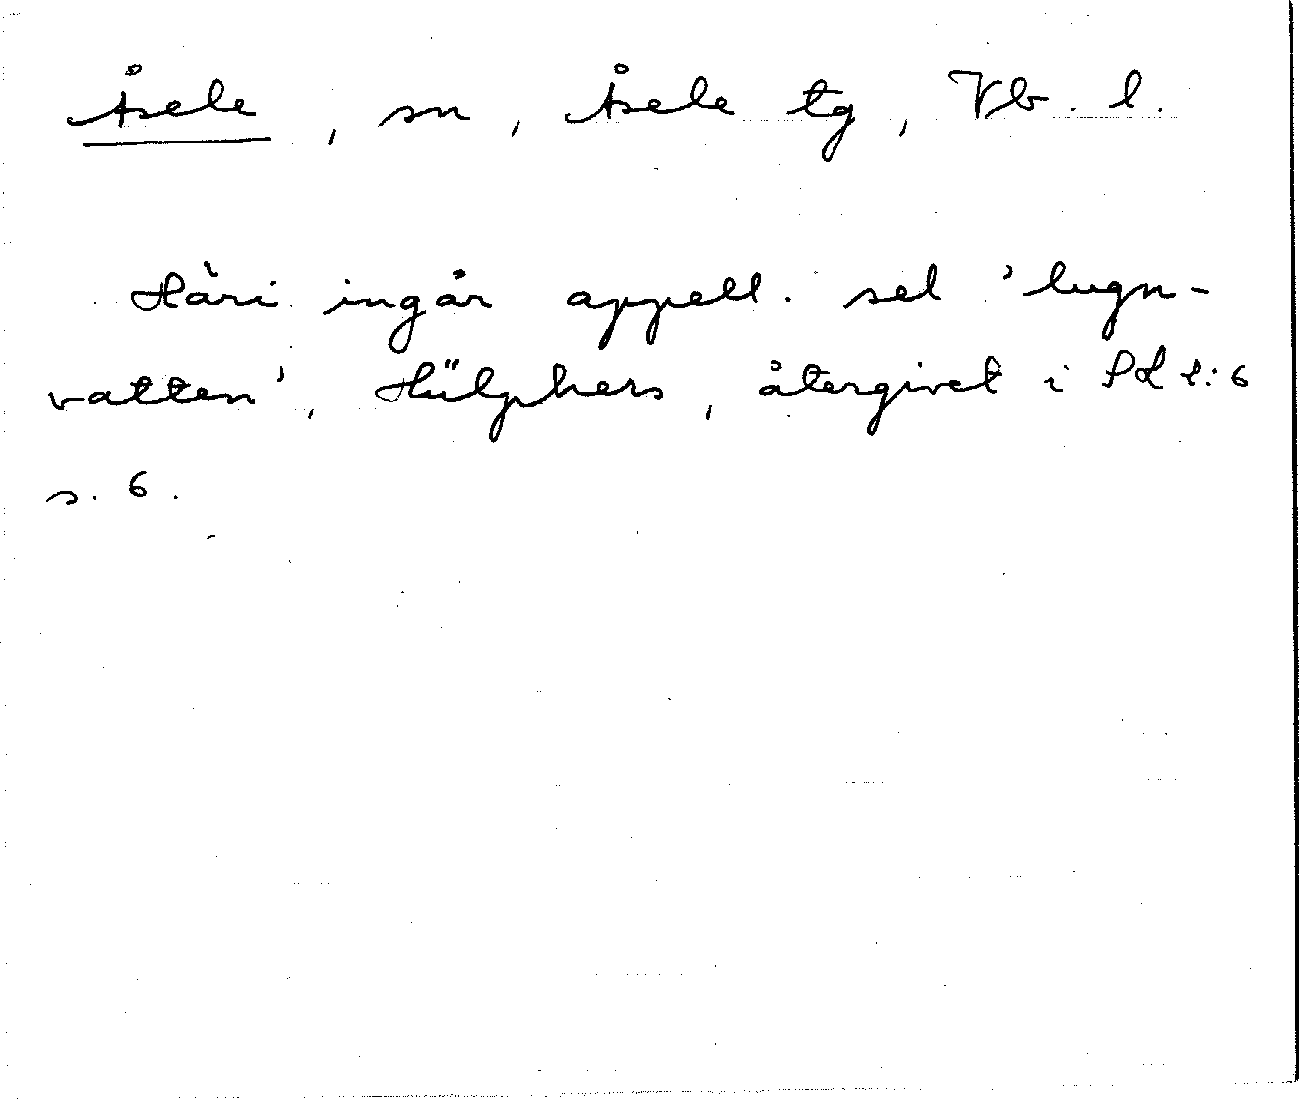 Åsele, sn, Åsele tg, Vb. l.
Häri ingår appell. sel 'lugn-
vatten', Hülphers, återgivet i PL 1:6
s. 6.